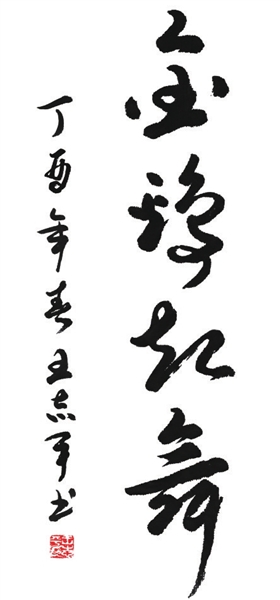 金鸡起舞
丁酉年春王志平书